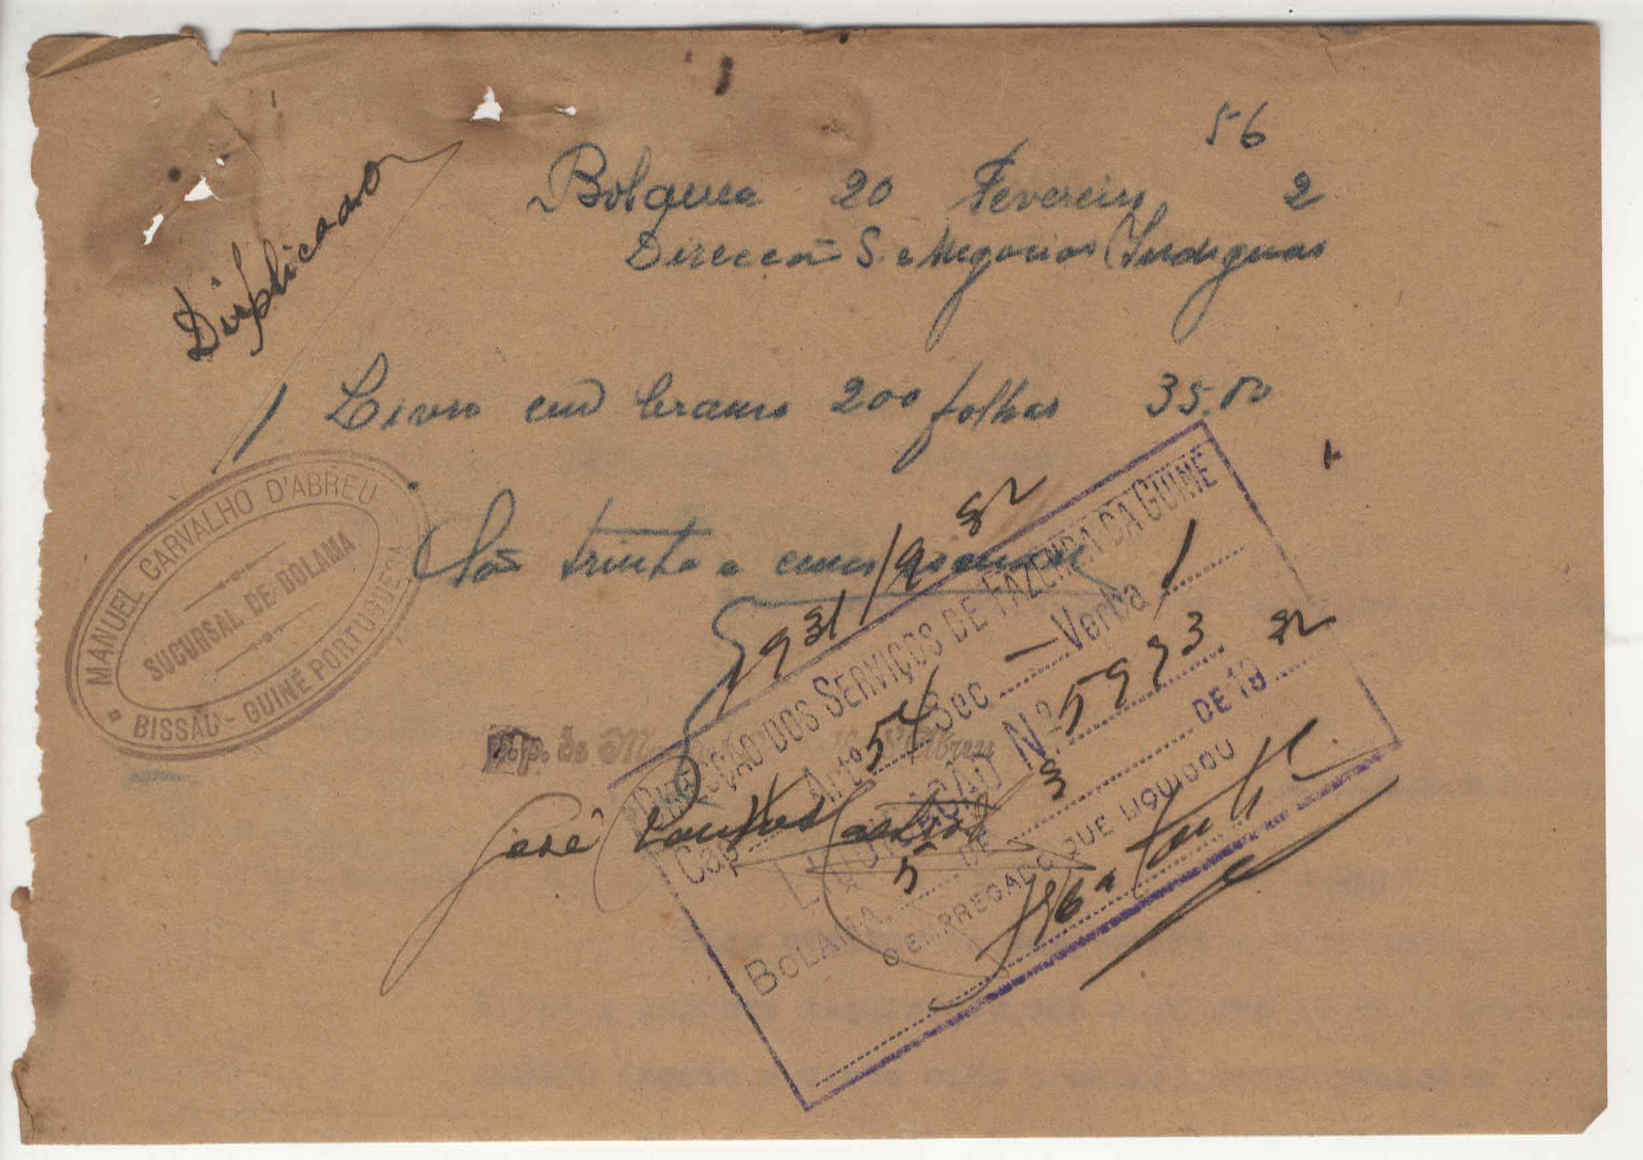 56
Bolama 20 Fevereiro 2
Direccão S. e Negocios Indigenas
Duplicado
1 Livro em branco 200 folhas 35.00
São trinta e cinco escudos
MANUEL CARVALHO D'ABREU
SUCURSAL DE BOLAMA
BISSAU - GUINÉ PORTUGUESA
1931/932
DIRECÇÃO DOS SERVIÇOS DE FAZENDA DA GUINÉ
Cap. Artº 54 Sec — Verba 1
LIQUIDAÇÃO Nº 5993
BOLAMA, 5 DE 3 DE 19 32
O EMPREGADO QUE LIQUIDOU
José Santos